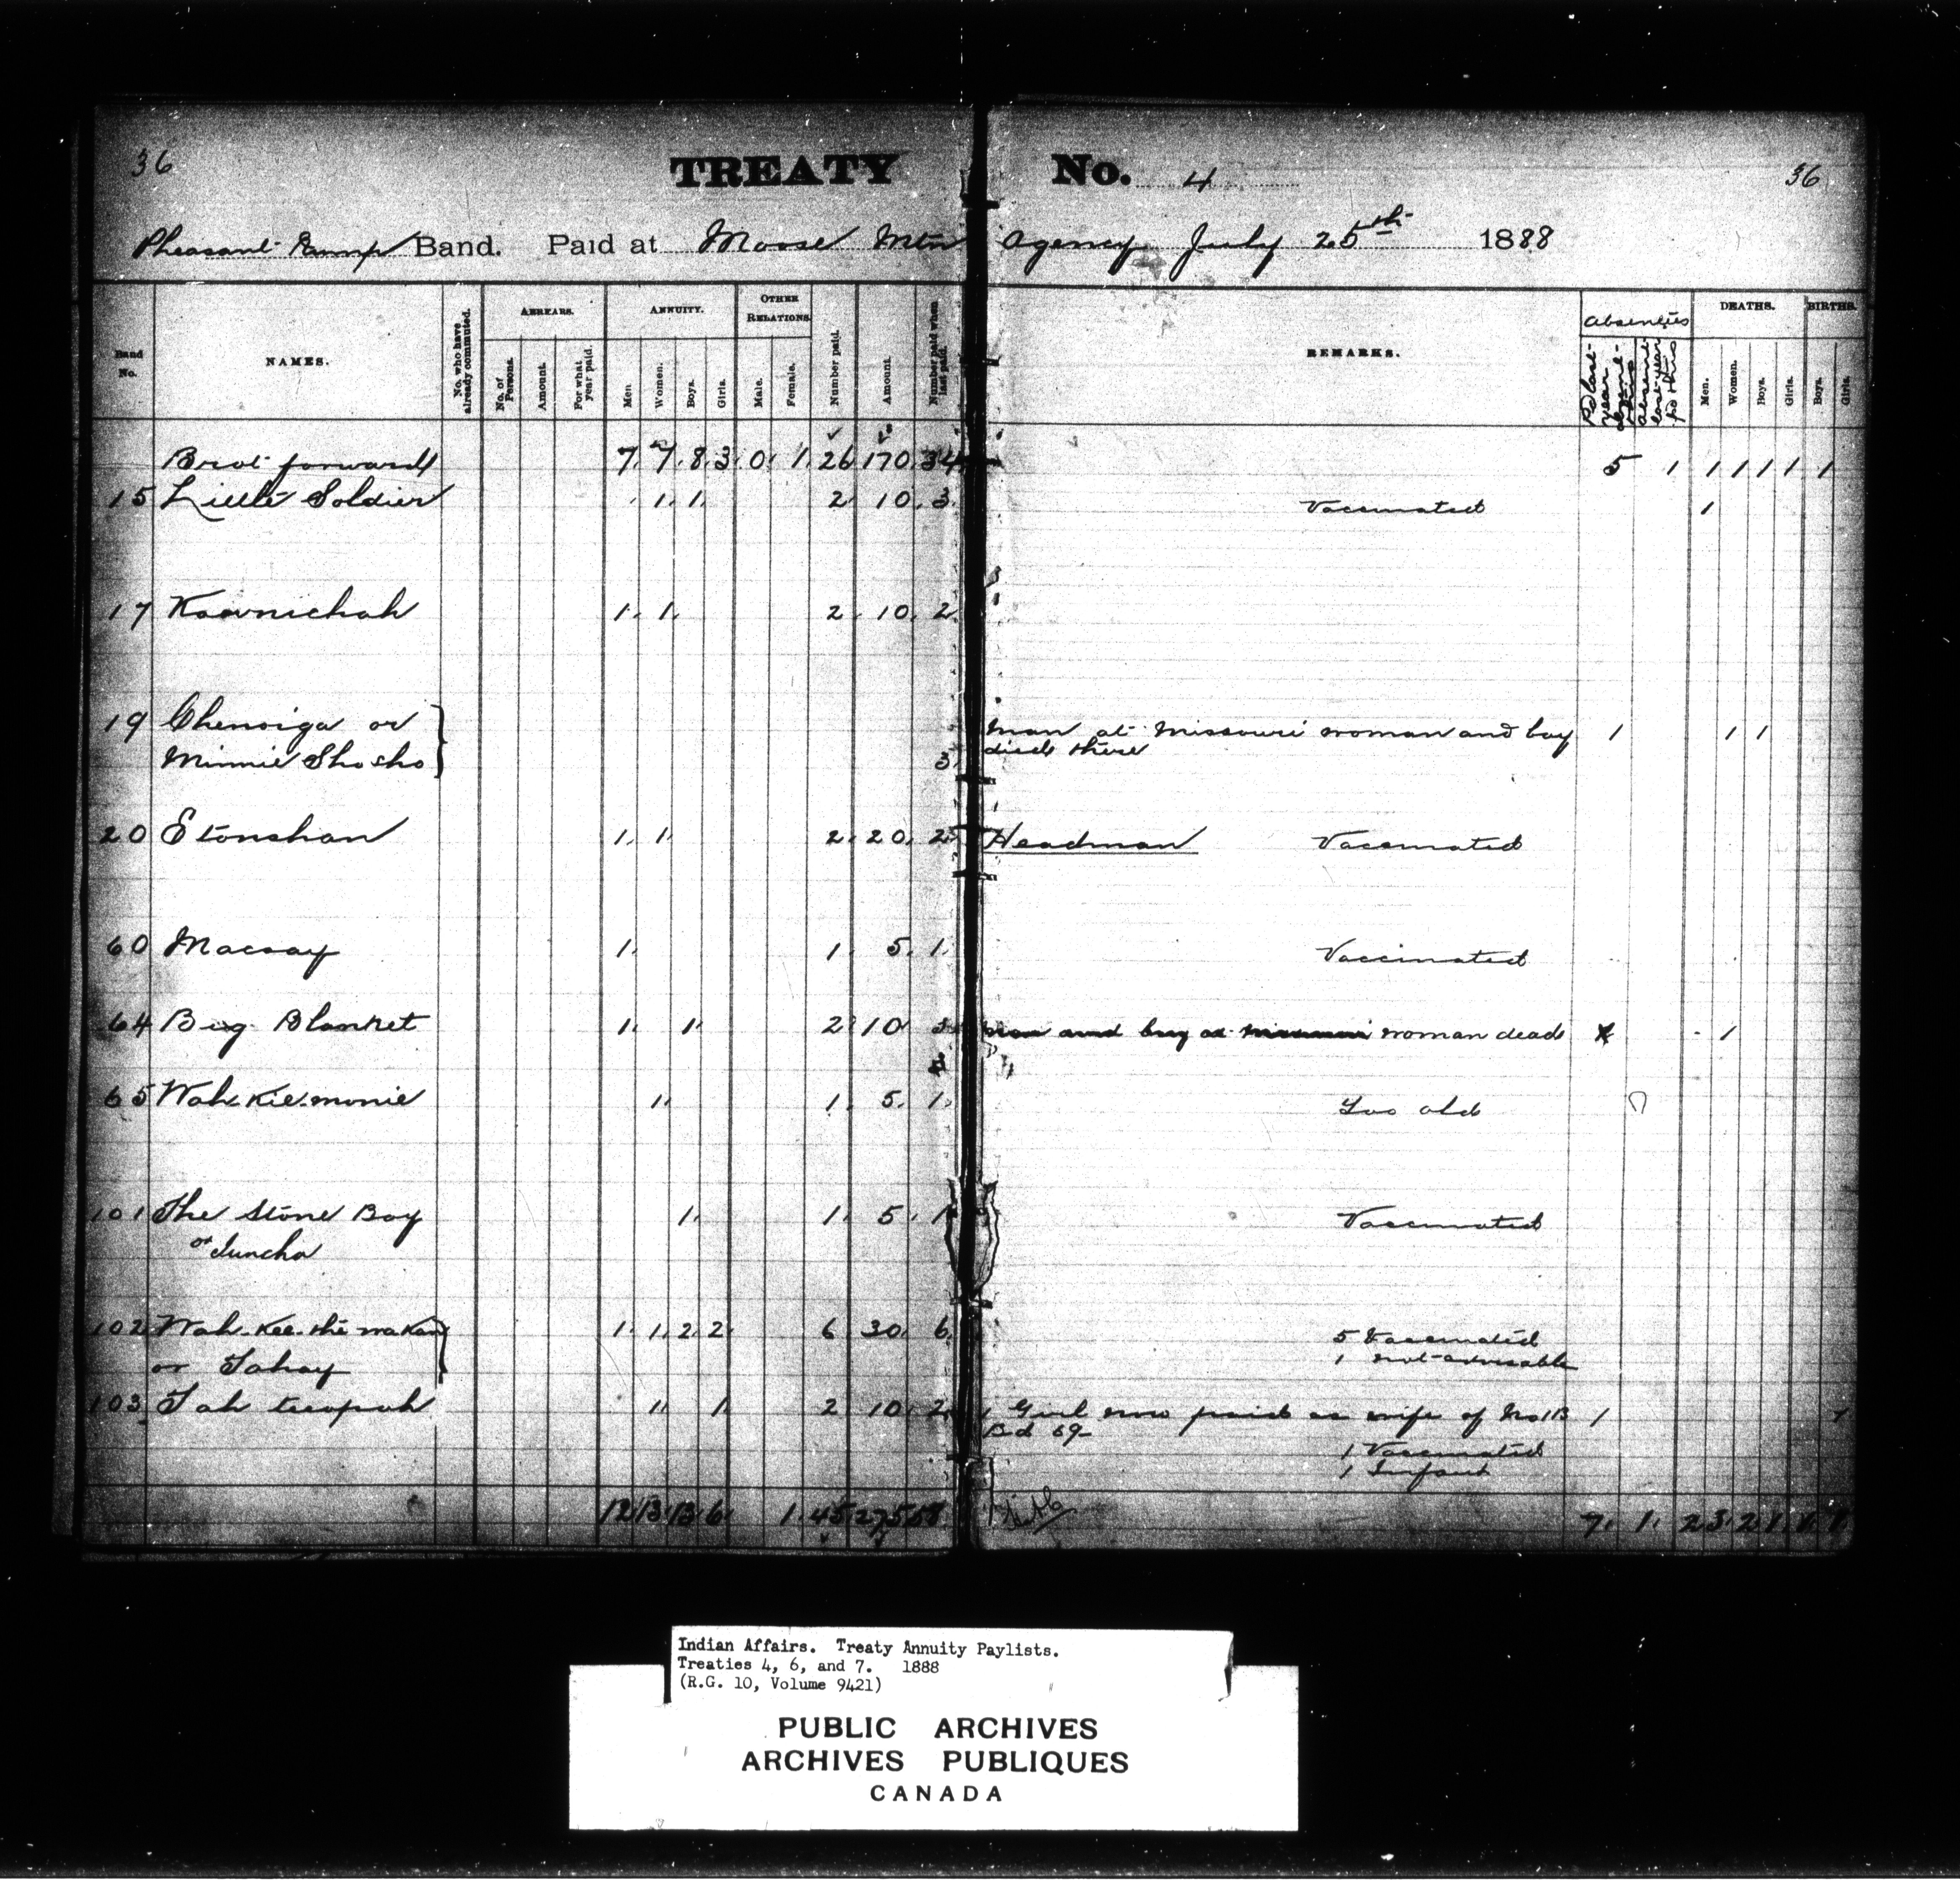 36 TREATY No. 4 36
Pheasant Rump Band. Paid at Moose Mtn Agency July 25th 1888
Band No. NAMES. No. who have already commuted. ARREARS. No. of Persons. Amount. For what year paid. ANNUITY. Men. Women. Boys. Girls. OTHER RELATIONS. Male. Female. Number paid. Amount. Number paid when last paid. REMARKS. Absentees Pd last year absent this absent last year pd this DEATHS. Men. Women. Boys. Girls. BIRTHS. Boys. Girls.
Brot forward 7 7 8 3 0 1 26 170 34 5 1 1 1 1 1 1
15 Little Soldier 1 1 2 10 3 Vaccinated 1
17 Koownichah 1 1 2 10 2
19 Chenoiga or man at Missouri woman and boy 1 1 1
Minnie Shosho 3 died there
20 Etonshan 1 1 2 20 2 Headman Vaccinated
60 Macsay 1 1 5 1 Vaccinated
64 Big Blanket 1 1 2 10 3 man and boy at Missouri woman dead 1
65 Wah-kie-monie 1 1 5 1 Too old
101 The Stone Boy 1 1 5 1 Vaccinated
or Juncha
102 Wah-kee-the-makan 1 1 2 2 6 30 6 5 Vaccinated
or Tahay 1 not advisable
103 Tah teopah 1 1 2 10 2 1 Girl now paid as wife of No 113 1 1
Bd 69
1 Vaccinated
1 Infant
12 13 13 6 1 45 275 58 7 1 2 3 2 1 1 1
Indian Affairs. Treaty Annuity Paylists.
Treaties 4, 6, and 7. 1888
(R.G. 10, Volume 9421)
PUBLIC ARCHIVES
ARCHIVES PUBLIQUES
CANADA